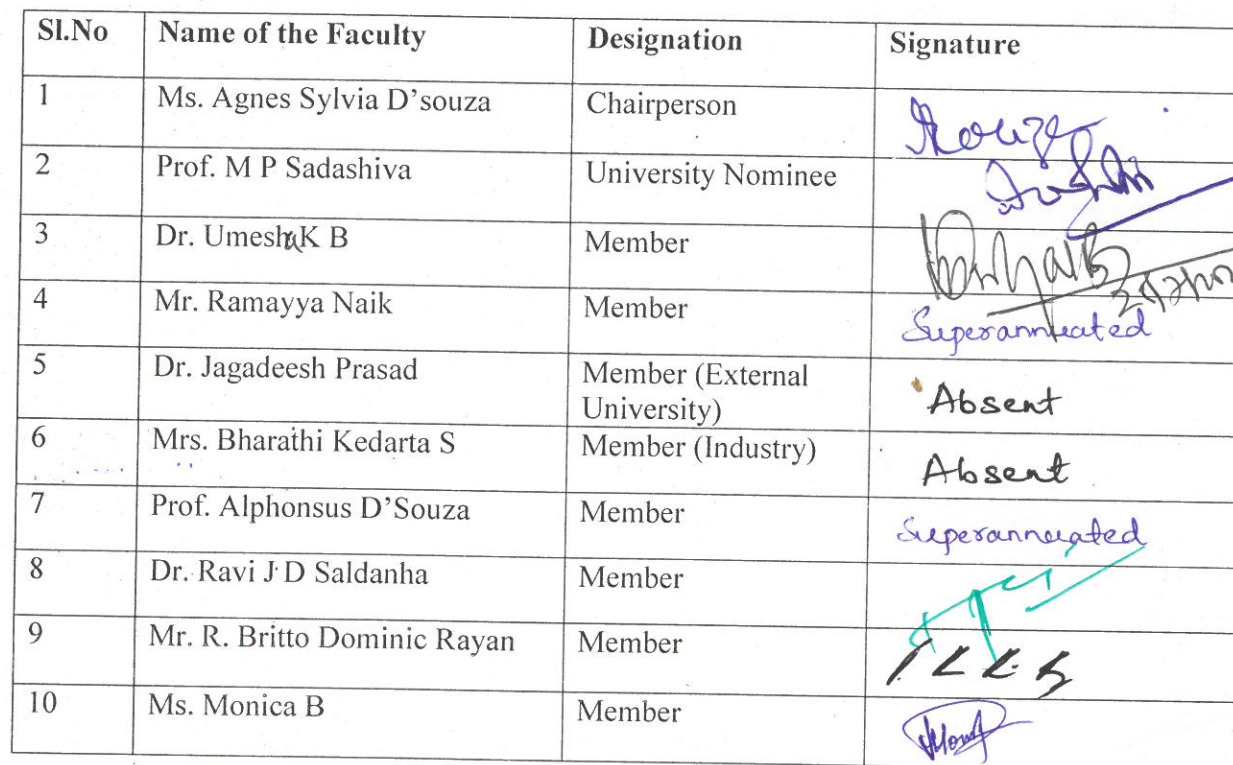 Sl.No Name of the Faculty Designation Signature
1 Ms. Agnes Sylvia D'souza Chairperson
2 Prof. M P Sadashiva University Nominee
3 Dr. Umesha K B Member
4 Mr. Ramayya Naik Member Superannuated
5 Dr. Jagadeesh Prasad Member (External
University) Absent
6 Mrs. Bharathi Kedarta S Member (Industry) Absent
7 Prof. Alphonsus D'Souza Member Superannuated
8 Dr. Ravi J D Saldanha Member
9 Mr. R. Britto Dominic Rayan Member
10 Ms. Monica B Member